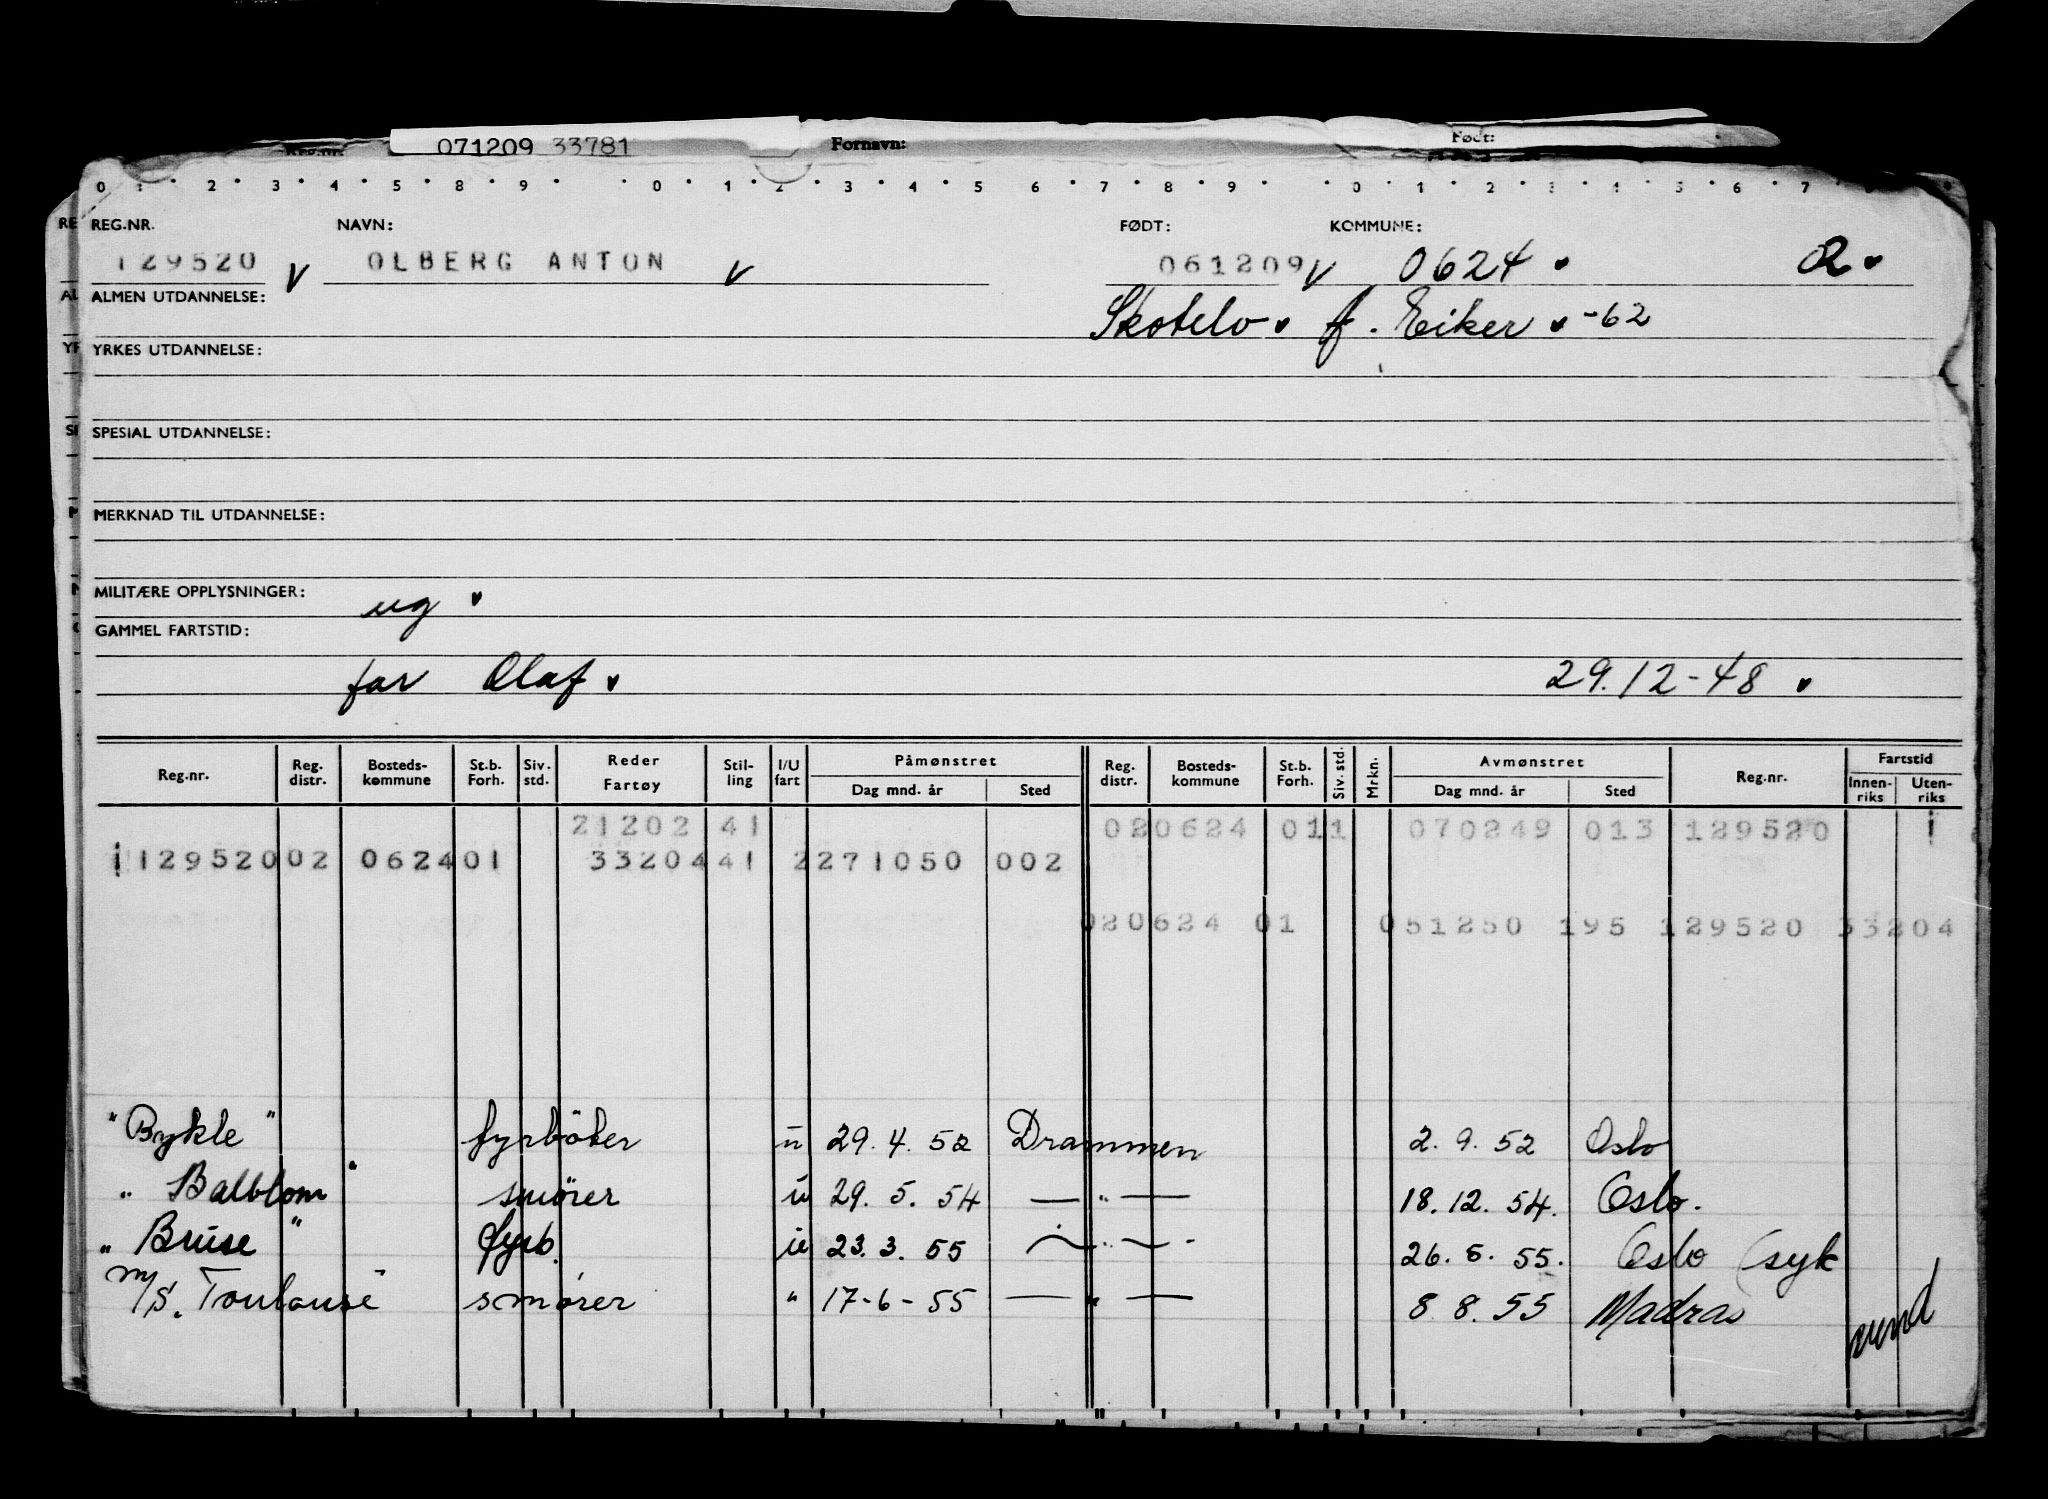 071209 33781 Fornavn: Født:
0 2 3 4 5 8 9 0 1 2 3 4 5 6 7 8 9 0 1 2 3 4 5 6 7
REG.NR. NAVN: FØDT: KOMMUNE:
129520 V OLBERG ANTON V 061209 V 0624 02
ALMEN UTDANNELSE: Skotselv ø. Eiker -62
YRKES UTDANNELSE:
SPESIAL UTDANNELSE:
MERKNAD TIL UTDANNELSE:
MILITÆRE OPPLYSNINGER: ug
GAMMEL FARTSTID:
far Olaf 29.12-48
Reg.nr. Reg. distr. Bosteds-kommune St.b. Forh. Siv. std. Reder Fartøy Stil-ling I/U fart Påmønstret Dag mnd. år Sted Reg. distr. Bosteds-kommune St.b. Forh. Siv. std. Mrkn. Avmønstret Dag mnd. år Sted Reg.nr. Fartstid Innen-riks Uten-riks
21202 41 020624 011 070249 013 129520 1
1129520 02 0624 01 33204 41 2271050 002
020624 01 051250 195 129520 33204
"Bykle" fyrbøter u 29.4.52 Drammen 2.9.52 Oslo
"Balblom" smører u 29.5.54 — " — 18.12.54. Oslo.
"Bruse" fyrb. u 23.3.55 — " — 26.5.55. Oslo (syk
M/S. Toulouse smører " 17-6-55 — " — 8 8.55 Madras